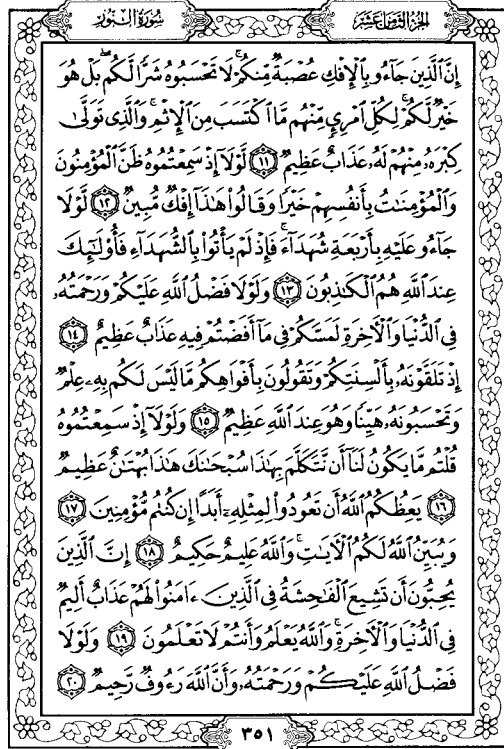 الجزء الثامن عشر
سورة النور
إِنَّ ٱلَّذِينَ جَآءُو بِٱلۡإِفۡكِ عُصۡبَةٞ مِّنكُمۡۚ لَا تَحۡسَبُوهُ شَرّٗا لَّكُمۖ بَلۡ هُوَ
خَيۡرٞ لَّكُمۡۚ لِكُلِّ ٱمۡرِيٕٖ مِّنۡهُم مَّا ٱكۡتَسَبَ مِنَ ٱلۡإِثۡمِۚ وَٱلَّذِي تَوَلَّىٰ
كِبۡرَهُۥ مِنۡهُمۡ لَهُۥ عَذَابٌ عَظِيمٞ ١١ لَّوۡلَآ إِذۡ سَمِعۡتُمُوهُ ظَنَّ ٱلۡمُؤۡمِنُونَ
وَٱلۡمُؤۡمِنَٰتُ بِأَنفُسِهِمۡ خَيۡرٗا وَقَالُواْ هَٰذَآ إِفۡكٞ مُّبِينٞ ١٢ لَّوۡلَا
جَآءُو عَلَيۡهِ بِأَرۡبَعَةِ شُهَدَآءَۚ فَإِذۡ لَمۡ يَأۡتُواْ بِٱلشُّهَدَآءِ فَأُوْلَٰٓئِكَ
عِندَ ٱللَّهِ هُمُ ٱلۡكَٰذِبُونَ ١٣ وَلَوۡلَا فَضۡلُ ٱللَّهِ عَلَيۡكُمۡ وَرَحۡمَتُهُۥ
فِي ٱلدُّنۡيَا وَٱلۡأٓخِرَةِ لَمَسَّكُمۡ فِي مَآ أَفَضۡتُمۡ فِيهِ عَذَابٌ عَظِيمٌ ١٤
إِذۡ تَلَقَّوۡنَهُۥ بِأَلۡسِنَتِكُمۡ وَتَقُولُونَ بِأَفۡوَاهِكُم مَّا لَيۡسَ لَكُم بِهِۦ عِلۡمٞ
وَتَحۡسَبُونَهُۥ هَيِّنٗا وَهُوَ عِندَ ٱللَّهِ عَظِيمٞ ١٥ وَلَوۡلَآ إِذۡ سَمِعۡتُمُوهُ
قُلۡتُم مَّا يَكُونُ لَنَآ أَن نَّتَكَلَّمَ بِهَٰذَا سُبۡحَٰنَكَ هَٰذَا بُهۡتَٰنٌ عَظِيمٞ
١٦ يَعِظُكُمُ ٱللَّهُ أَن تَعُودُواْ لِمِثۡلِهِۦٓ أَبَدًا إِن كُنتُم مُّؤۡمِنِينَ ١٧
وَيُبَيِّنُ ٱللَّهُ لَكُمُ ٱلۡأٓيَٰتِۚ وَٱللَّهُ عَلِيمٌ حَكِيمٌ ١٨ إِنَّ ٱلَّذِينَ
يُحِبُّونَ أَن تَشِيعَ ٱلۡفَٰحِشَةُ فِي ٱلَّذِينَ ءَامَنُواْ لَهُمۡ عَذَابٌ أَلِيمٞ
فِي ٱلدُّنۡيَا وَٱلۡأٓخِرَةِۚ وَٱللَّهُ يَعۡلَمُ وَأَنتُمۡ لَا تَعۡلَمُونَ ١٩ وَلَوۡلَا
فَضۡلُ ٱللَّهِ عَلَيۡكُمۡ وَرَحۡمَتُهُۥ وَأَنَّ ٱللَّهَ رَءُوفٞ رَّحِيمٞ ٢٠
٣٥١